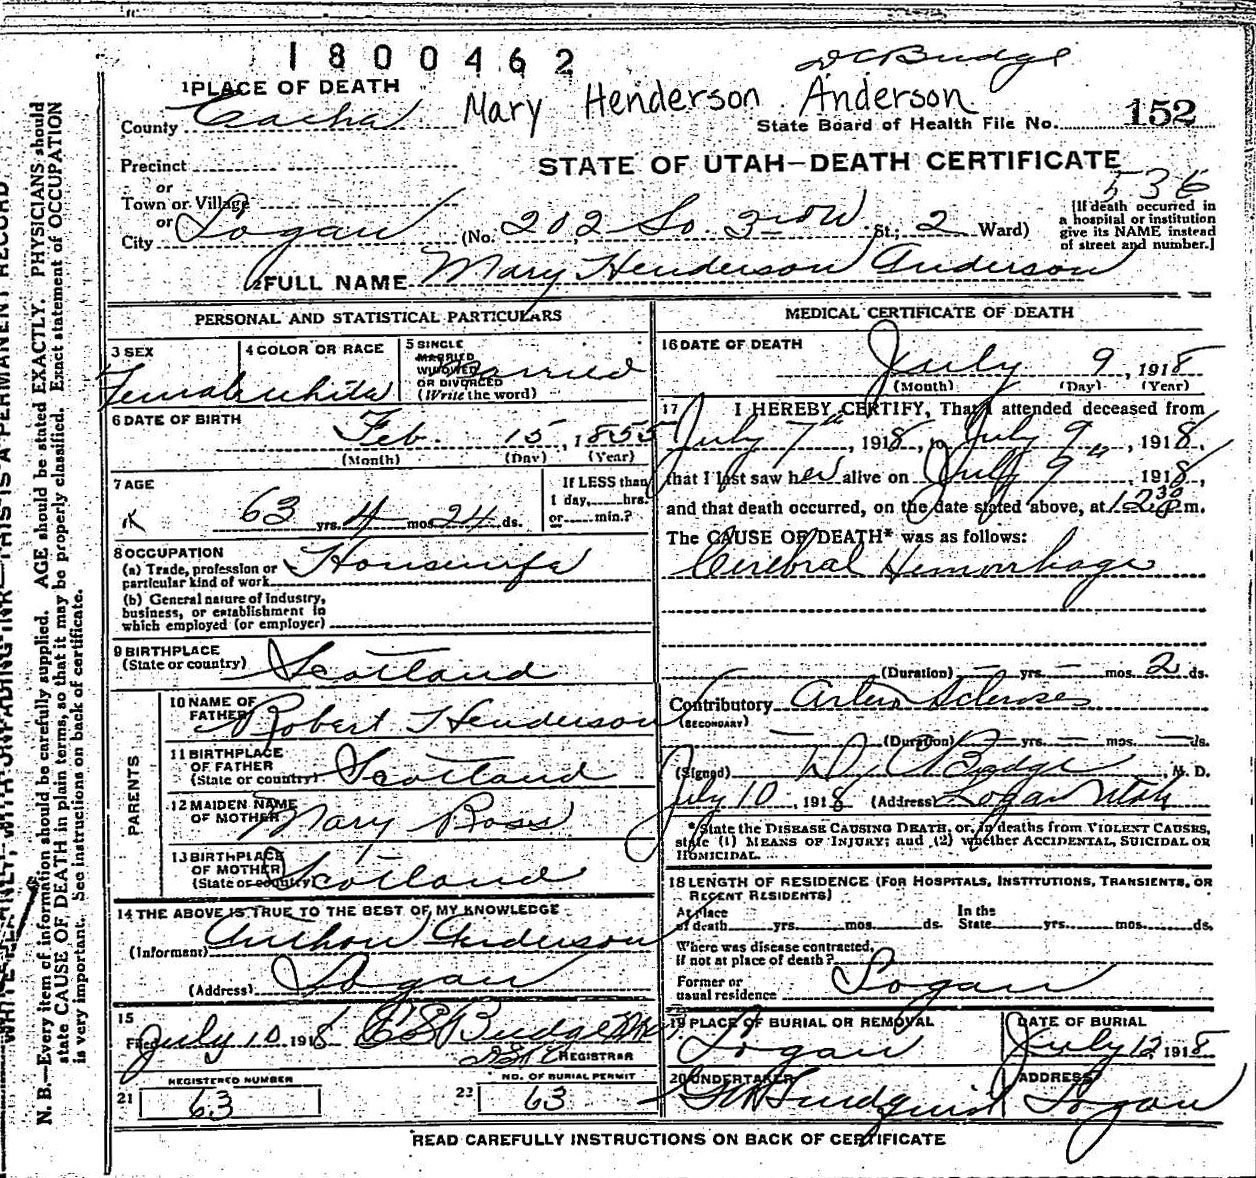 1800462
D C Budge
1 PLACE OF DEATH
Mary Henderson Anderson
County Cache
State Board of Health File No. 152
Precinct
STATE OF UTAH—DEATH CERTIFICATE
or
Town or Village
536
or
City Logan (No. 202 So. 3rd W St.; 2 Ward)
[If death occurred in
a hospital or institution
give its NAME instead
of street and number.]
2 FULL NAME Mary Henderson Anderson
PERSONAL AND STATISTICAL PARTICULARS
3 SEX
Female
4 COLOR OR RACE
white
5 SINGLE
MARRIED
WIDOWED
OR DIVORCED
(Write the word)
Married
6 DATE OF BIRTH
Feb. 15, 1855
(Month) (Day) (Year)
7 AGE
63 yrs. 4 mos. 24 ds.
If LESS than
1 day, hrs.
or min.?
8 OCCUPATION
(a) Trade, profession or
particular kind of work Housewife
(b) General nature of industry,
business, or establishment in
which employed (or employer)
9 BIRTHPLACE
(State or country) Scotland
PARENTS
10 NAME OF
FATHER Robert Henderson
11 BIRTHPLACE
OF FATHER
(State or country) Scotland
12 MAIDEN NAME
OF MOTHER Mary Ross
13 BIRTHPLACE
OF MOTHER
(State or country) Scotland
14 THE ABOVE IS TRUE TO THE BEST OF MY KNOWLEDGE
(Informant) Anthon Anderson
(Address) Logan
15
Filed July 10 1918 Budge
REGISTRAR
REGISTERED NUMBER
21 63
NO. OF BURIAL PERMIT
22 63
MEDICAL CERTIFICATE OF DEATH
16 DATE OF DEATH
July 9, 1918
(Month) (Day) (Year)
17 I HEREBY CERTIFY, That I attended deceased from
July 7th, 1918, to July 9, 1918,
that I last saw her alive on July 9th, 1918,
and that death occurred, on the date stated above, at 12 30 m.
The CAUSE OF DEATH* was as follows:
Cerebral Hemorrhage
(Duration) — yrs. — mos. 2 ds.
Contributory Arterio Scleroses
(SECONDARY)
(Duration) — yrs. — mos. — ds.
(Signed) D. C. Budge, M. D.
July 10, 1918 (Address) Logan Utah
*State the DISEASE CAUSING DEATH, or, in deaths from VIOLENT CAUSES,
state (1) MEANS OF INJURY; and (2) whether ACCIDENTAL, SUICIDAL OR
HOMICIDAL.
18 LENGTH OF RESIDENCE (FOR HOSPITALS, INSTITUTIONS, TRANSIENTS, OR
RECENT RESIDENTS)
At place
of death yrs. mos. ds.
In the
State yrs. mos. ds.
Where was disease contracted,
if not at place of death?
Former or
usual residence Logan
19 PLACE OF BURIAL OR REMOVAL
Logan
DATE OF BURIAL
July 12 1918
20 UNDERTAKER
Lundquist
ADDRESS
Logan
READ CAREFULLY INSTRUCTIONS ON BACK OF CERTIFICATE
WRITE PLAINLY, WITH UNFADING INK—THIS IS A PERMANENT RECORD
N. B.—Every item of information should be carefully supplied. AGE should be stated EXACTLY. PHYSICIANS should
state CAUSE OF DEATH in plain terms, so that it may be properly classified. Exact statement of OCCUPATION
is very important. See instructions on back of certificate.